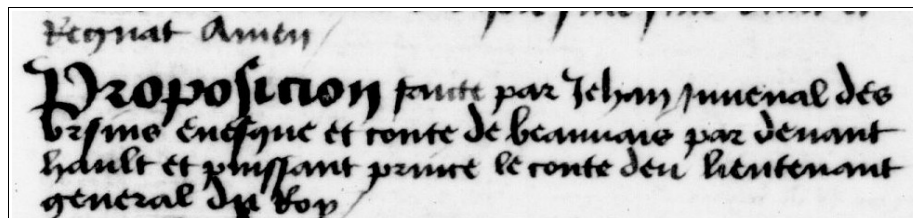 Regnat Amen
Proposicion faicte par Jehan Juuenal des
vrsins euesque et conte de beauuais par deuant
hault et puissant prince le conte deu lieutenant
general du Roy